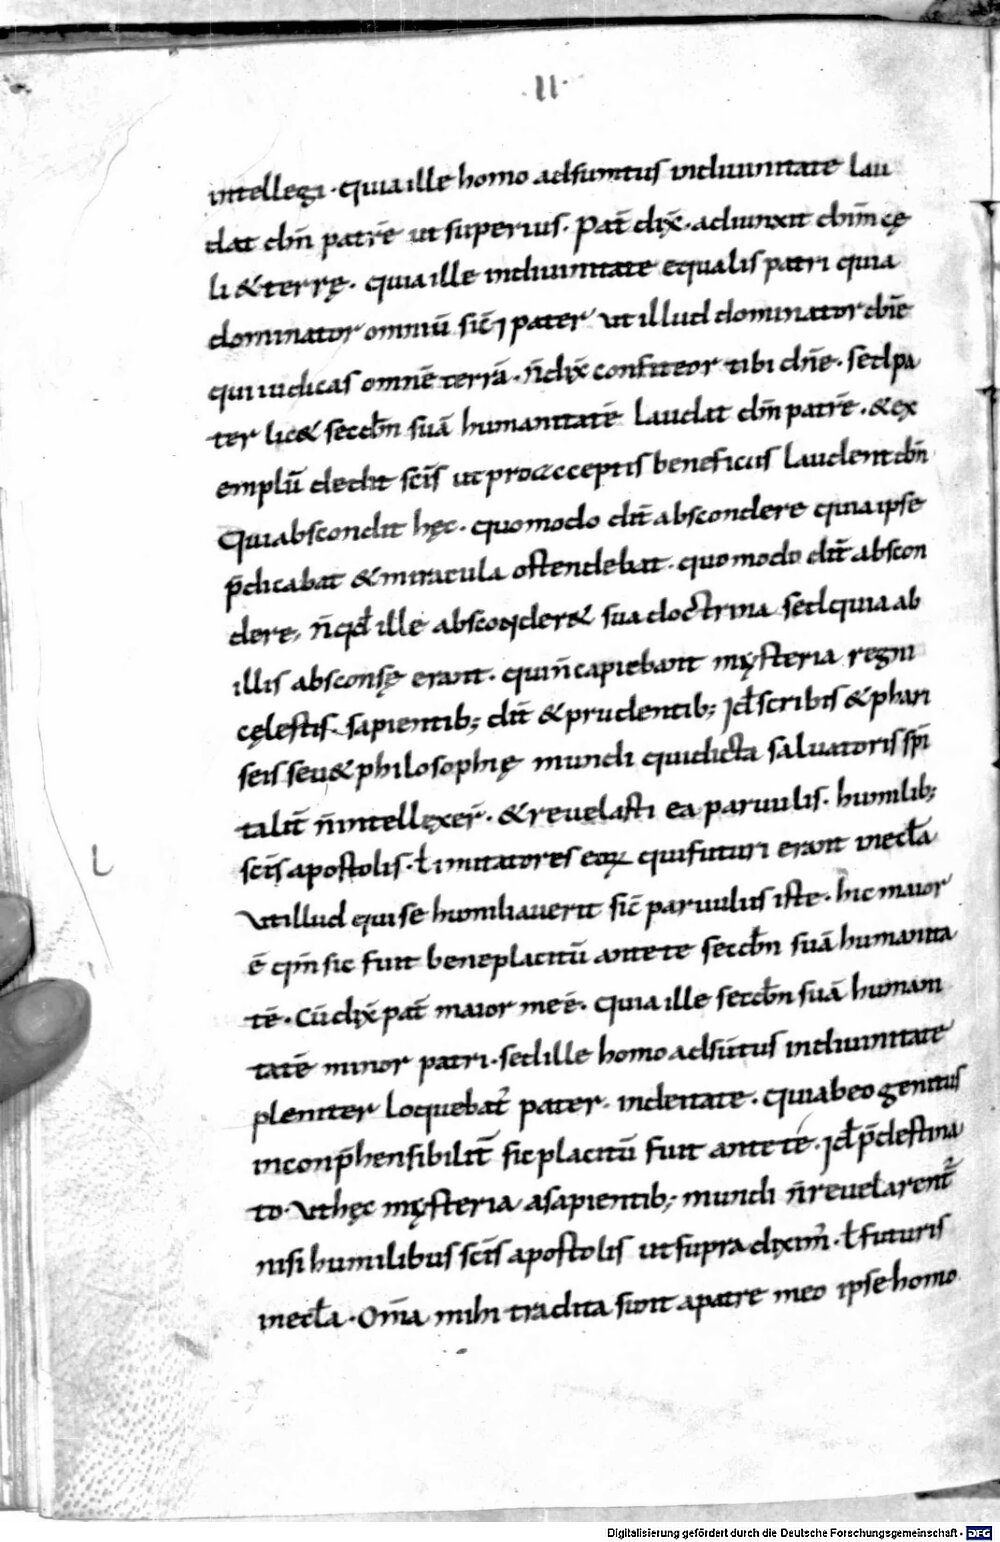 ·II·
intellegi · quia ille homo adsumtus indiuinitate lau
dat dn̄m patrē ut superius. Pat̄ dix̄. adiunxit dn̄m cę
li & terrę. quia ille indiuinitate equalis patri quia
dominator omniū sic̄ & pater ut illud dominator dn̄e
qui iudicas omnē terrā. n̄ dix̄ confiteor tibi dn̄e. sed pa
ter lic& secdn̄ suā humanitatē laudat dn̄m patrē. & ex
emplū dedit sc̄is ut pro acceptis beneficiis laudent dn̄m
Qui abscondit hęc. quomodo dit̄ abscondere quia ipse
p̄dicabat & miracula ostendebat. quomodo dit̄ abscon
dere, n̄ qđ ille absconder& sua doctrina sed quia ab
illis absconsę erant. qui n̄ capiebant mysteria regni
cęlestis. sapientib; dit̄ & prudentib; Id̄ scribis & phari
seis seu & philosophię mundi qui dicta saluatoris spi
talit̄ n̄ intellexer̄. & reuelasti ea paruulis. humilib;
sc̄is apostolis. ł imitatores eoꝝ qui futuri erant in ecła
Ut illud qui se humiliauerit sic̄ paruulus iste. hic maior
ē qm̄ sic fuit beneplacitū ante te secdn̄ suā humanita
tē. Cū dix̄ pat̄ maior me ē. quia ille secdn̄ suā humani
tatē minor patri. sed ille homo adsūtus indiuinitate
pleniter loquebat̄ pater. indeitate. quia b eo genitus
inconp̄hensibilit̄ sic placitū fuit ante te. Id̄ p̄destina
to. Ut hęc mysteria a sapientib; mundi n̄ reuelarent̄
nisi humilibus sc̄is apostolis ut supra dixim̄. ł futuris
in ecła. Om̄a mihi tradita sunt a patre meo ipse homo
L
Digitalisierung gefördert durch die Deutsche Forschungsgemeinschaft - DFG